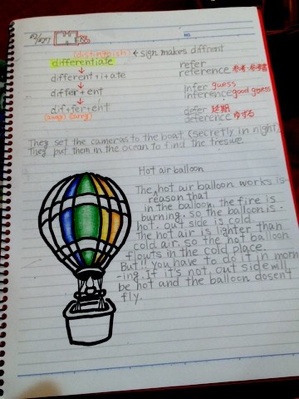 distinguish ← sign makes diffrent
differentiate
different+i+ate
differ+ent
dif+fer+ent
refer
reference 참조·참고
infer guess
inference good guess
defer
deference
They set the cameras to the boat (secretly in night)
They put them in the ocean to find the tresure.
Hot air balloon
The hot air balloon works is
reason that
in the balloon, the fire is
burning, so the balloon is
hot, out side is cold.
The hot air is lighter than
cold air, so the hot balloon
flouts in the cold place.
But!! you have to do it in morn
-ing if it's not, out side will
be hot and the balloon dosent
fly.